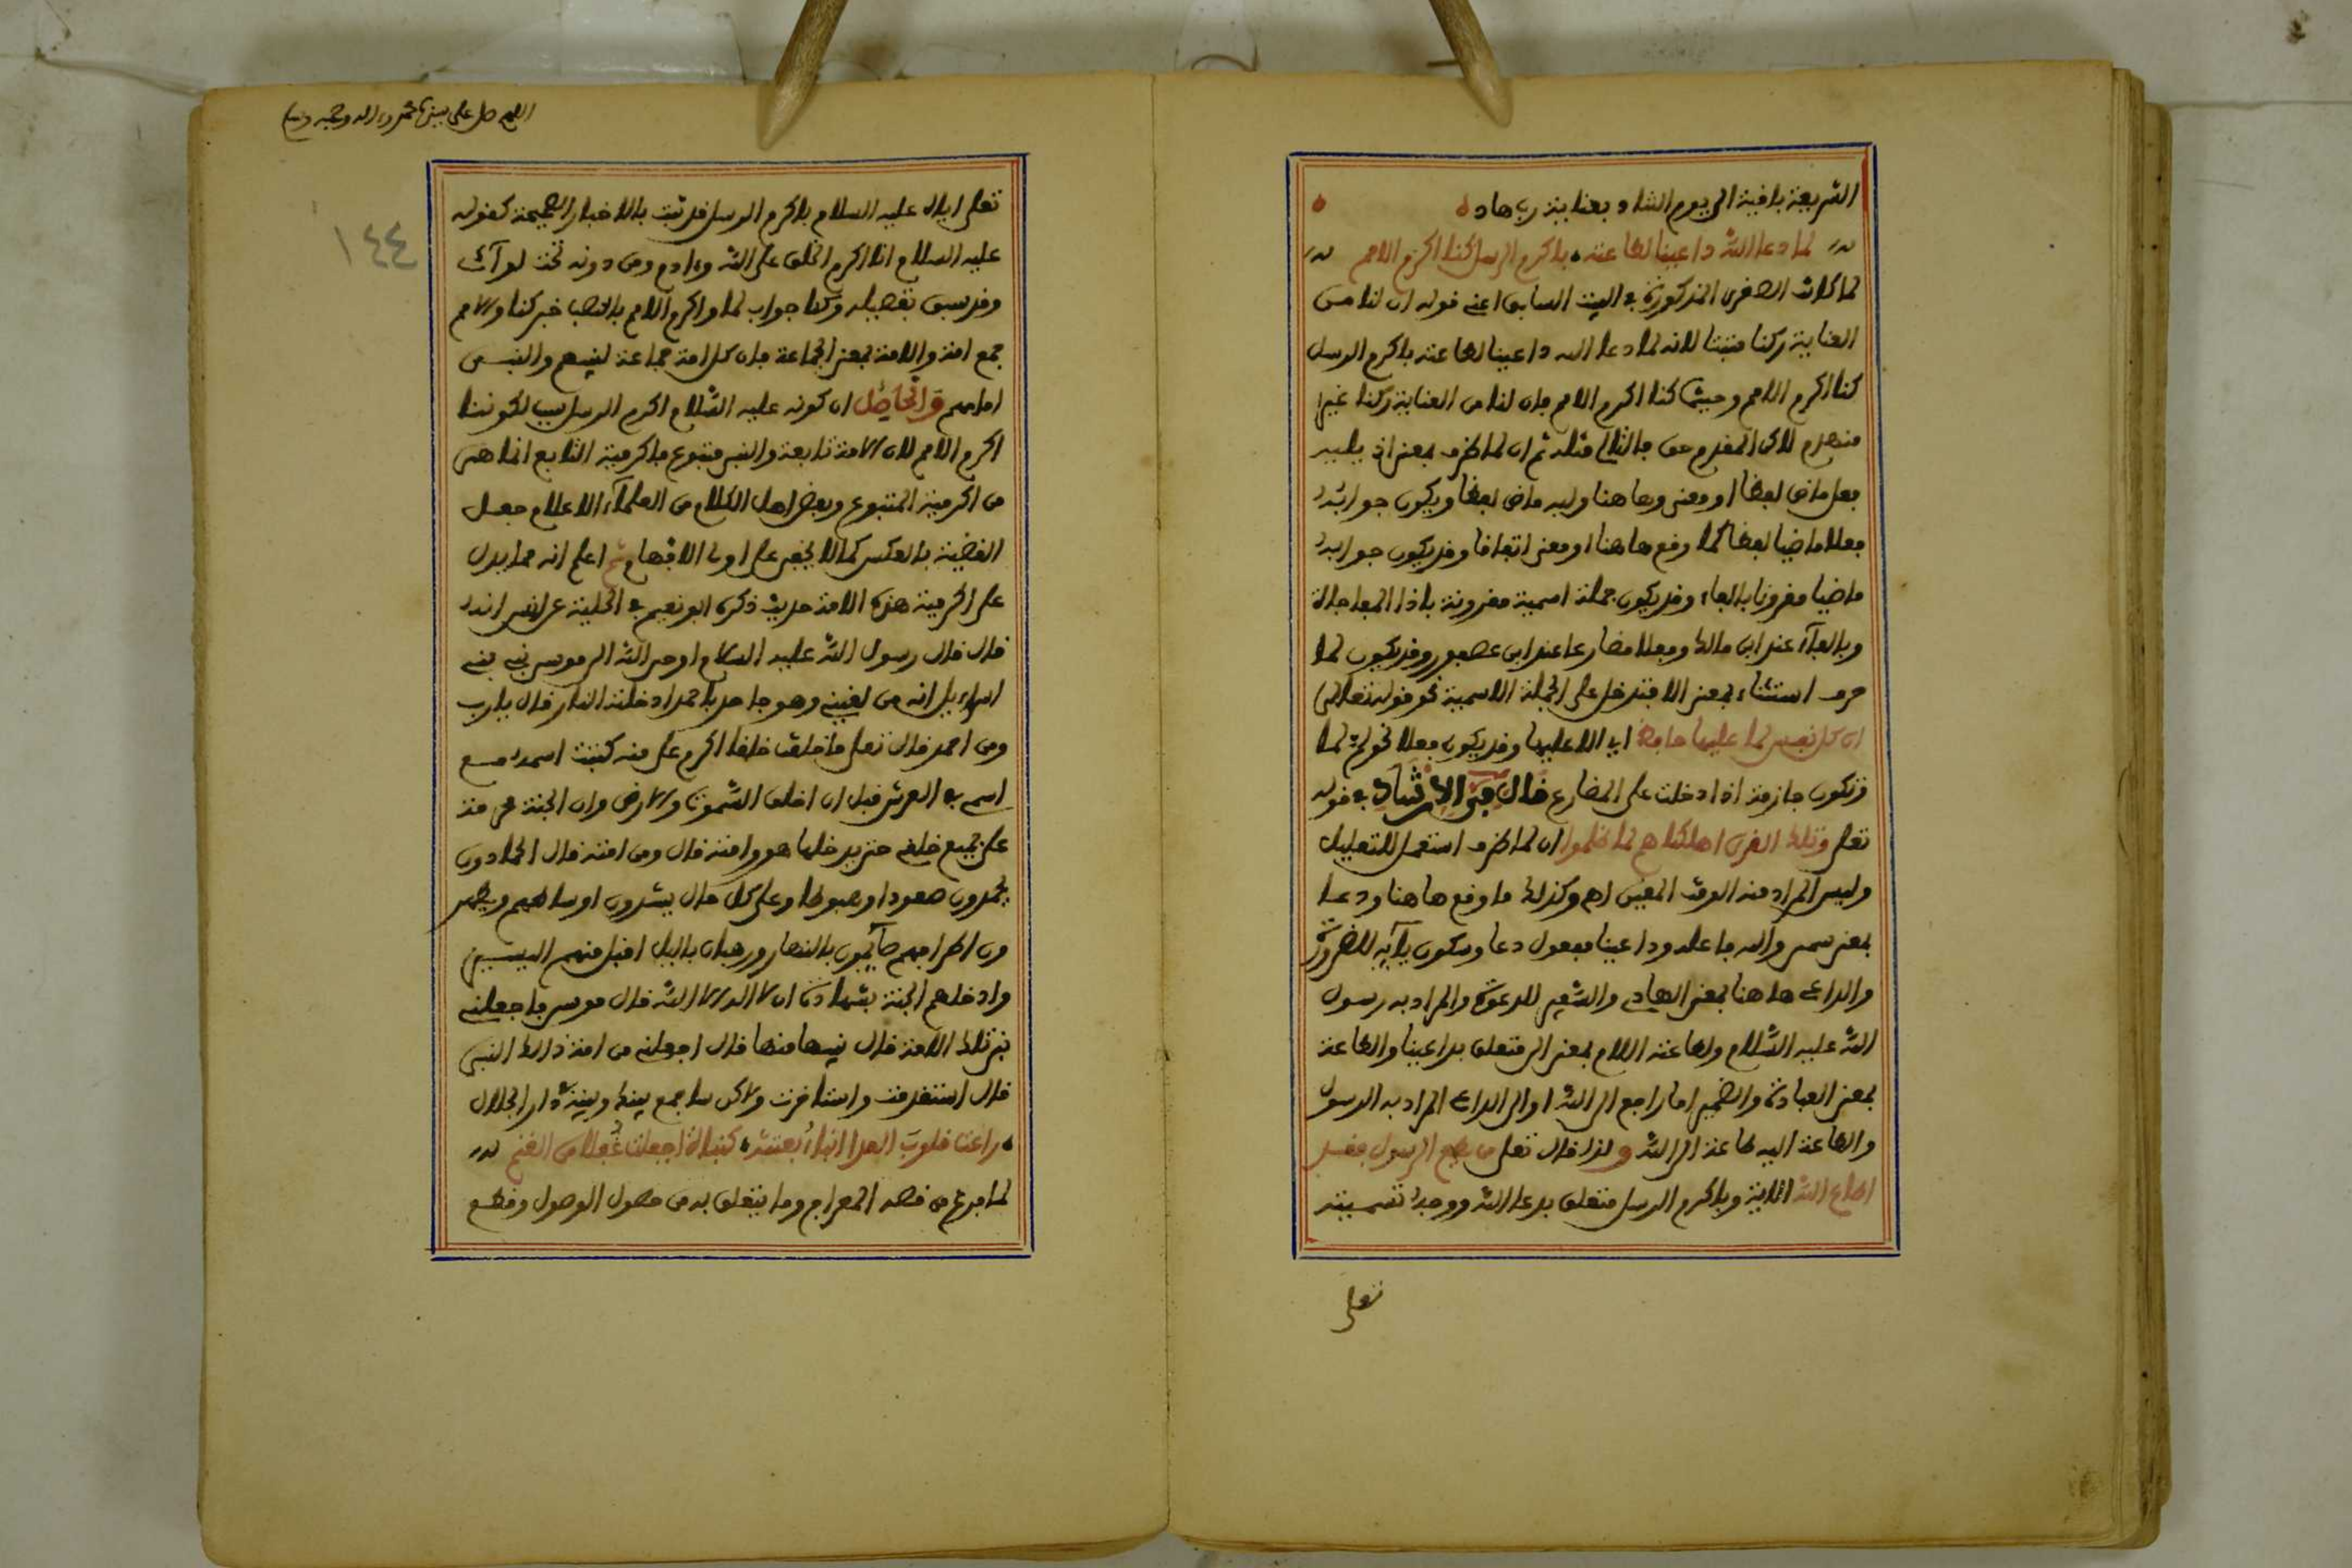 الشريعة باقية الى يوم التناد وبعناية رب هاد
لما دعا الله داعينا لطاعته باكرم الرسل كنا اكرم الامم
لما كانت الصغرى المذكورة في البيت السابق اعني قوله ان لنا من
العناية ركنا مثبتا لانه لما دعا الله داعينا لطاعته باكرم الرسل
كنا اكرم الامم وحيثما كنا اكرم الامم فان لنا من العناية ركنا غير
منهدم لاكن المقدم حق فالتالي مثله ثم ان لما ظرف بمعنى اذ يليه
فعل ماض لفظا او معنى وها هنا وليه ماض لفظا ويكون جوابه
فعلا ماضيا لفظا كما وقع هاهنا او معنى اتفاقا وقد يكون جوابه
ماضيا مقرونا بالفاء وقد يكون جملة اسمية مقرونة باذا المفاجاة
وبالفآء عند ابن مالك وفعلا مضارعا عند ابن عصفور وقد يكون لما
حرف استثناء بمعنى الا فتدخل على الجملة الاسمية نحو قوله تعالى
ان كل نفس لما عليها حافظ اي الا عليها وقد يكون فعلا نحو لم لما
فتكون جازمة اذا دخلت على المضارع قال في الارشاد في قوله
تعلى وتلك القرى اهلكناهم لما ظلموا ان لما ظرف استعمل للتعليل
وليس المراد منه الوقت المعين اهـ وكذلك ما وقع ها هنا ودعا
بمعنى سمى والله فاعله وداعينا مفعول دعا وسكون يآئه للضرورة
والداعي هاهنا بمعنى الهادي والسفير للدعوة والمراد به رسول
الله عليه السلام ولطاعته اللام بمعنى الى متعلق بداعينا والطاعة
بمعنى العبادة والضمير اما راجع الى الله او الى الداعي المراد به الرسول
والطاعة اليه طاعة الى الله ولذا قال تعلى من يطع الرسول فقد
اطاع الله الاية وباكرم الرسل متعلق بدعا الله ووجه تسميته
تعلى
اللهم صل على سيدنا محمد وءاله وصحبه وسلم
١٤٤
تعلى اياه عليه السلام باكرم الرسل قد ثبت بالاخبار الصحيحة كقوله
عليه السلام انا اكرم الخلق على الله وءادم ومن دونه تحت لوآئي
وقد سبق تفصيله وكنا جواب لما واكرم الامم بالنصب خبر كنا والامم
جمع امة والامة بمعنى الجماعة فان كل امة جماعة لنبيهم والنبي
امامهم والحاصل ان كونه عليه السلام اكرم الرسل سبب لكوننا
اكرم الامم لان الامة تابعة والنبي متبوع فاكرمية التابع انما هي
من اكرمية المتبوع وبعض اهل الكلام من العلمآء الاعلام جعل
القضية بالعكس كما لا يخفى على اولى الافهام ثم اعلم انه مما يدل
على اكرمية هذه الامة حديث ذكره ابو نعيم في الحلية عن انس انه
قال قال رسول الله عليه السلام اوحى الله الى موسى نبي بني
اسراءيل انه من لقيني وهو جاحد باحمد ادخلته النار قال يا رب
ومن احمد قال تعلى ما خلقت خلقا اكرم علي منه كتبت اسمه مع
اسمي في العرش قبل ان اخلق السموات والارض وان الجنة محرمة
على جميع خلقي حتى يدخلها هو وامته قال ومن امته قال الحمادون
يحمدون صعودا وهبوطا وعلى كل حال يشدون اوساطهم ويطهر
ون اطرافهم صآئمون بالنهار ورهبان بالليل اقبل منهم اليسير
وادخلهم الجنة بشهادة ان لا اله الا الله قال موسى فاجعلني
نبي تلك الامة قال نبيها منها قال اجعلني من امة ذالك النبي
قال استقدمت واستاخرت ولاكن ساجمع بينك وبينه في دار الجلال
راعت قلوب العدا انباء بعثته كنبأة اجفلت غفلا من الغنم
لما فرغ من قصة المعراج وما يتعلق به من حصول الوصول وقطع